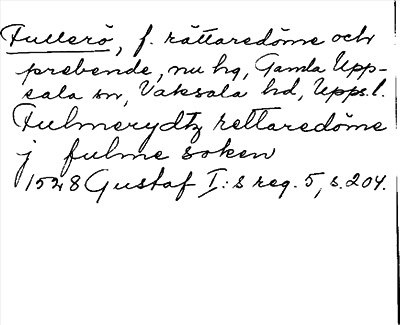 Fullerö, f. rättaredöme och
prebende, nu hg, Gamla Upp-
sala sn, Vaksala hd, Upps.l.
Fulmerydtz rettaredöme
j fulme soken
1528 Gustaf I:s reg. 5, s. 204.